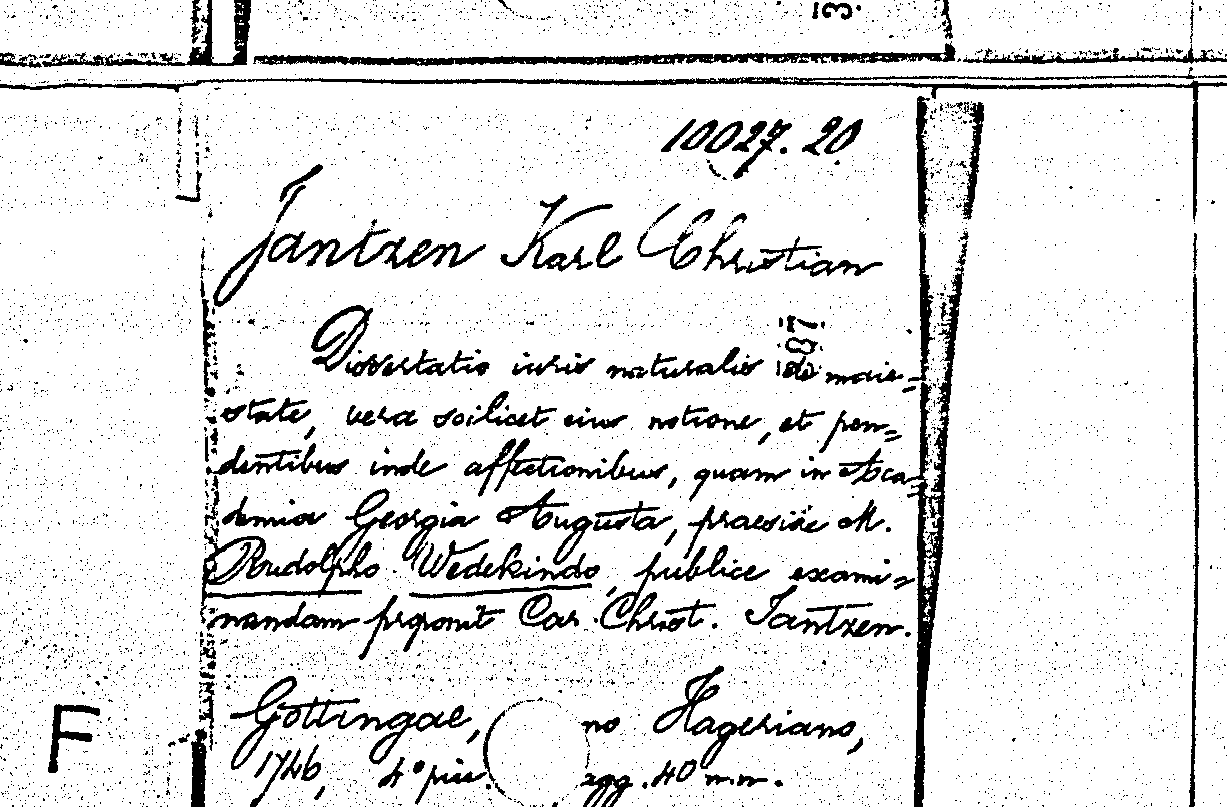 10027. 20
Jantzen Karl Christian
Dissertatio iuris naturalis de maie=
state, vera scilicet eius notione, et pen=
dentibus inde affectionibus, quam in Aca=
demia Georgia Augusta, praeside M.
Rudolpho Wedekindo, publice exami=
nandam proponit Car. Christ. Jantzen.
Gottingae, no Hageriano,
1746, 4° picc. 40 m.m.
F